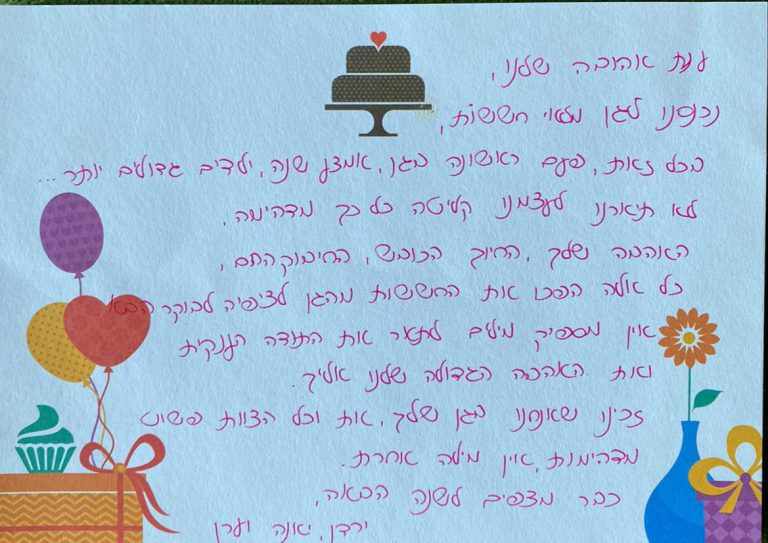 ענת אהובה שלנו,
נכנסנו לגן מלאי חששות,
בכל זאת, פעם ראשונה בגן, אמצע שנה, ילדים גדולים יותר...
לא תיארנו לעצמנו קליטה כל כך מדהימה,
האהבה שלך, החיוך הכובש, החיבוק החם,
כל אלה הפכו את החששות מהגן לציפיה לבוקר הבא.
אין מספיק מילים לתאר את התודה הענקית
ואת האהבה הגדולה שלנו אליך.
זכינו שאנחנו בגן שלך, את וכל הצוות פשוט
מדהימות, אין מילה אחרת.
כבר מצפים לשנה הבאה,
ירדן, יונה וערן